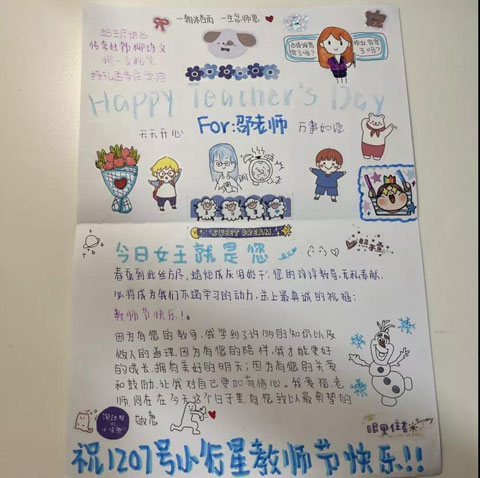 一朝沐杏雨 一生念师恩
给三尺讲台
传李杜诗柳诗文
Happy Teacher's Day
天天开心
For:邵老师
万事如意
SWEET DREAM
今日女王就是您
春蚕到此丝方尽,蜡炬成灰泪始干,您的谆谆教导,无私奉献,
必将成为我们不竭学习的动力,送上最真诚的祝福:
教师节快乐!
因为有您的教导,我学到了许多的知识以及
做人的道理,因为有您的陪伴,我才能更好
的成长,拥有美好的明天;因为有您的关爱
和鼓励,让我对自己更加有信心。我爱您,老
师
在今天这个日子里,向您致以最真挚的
敬意
眼里住着
祝1207号小行星教师节快乐!!